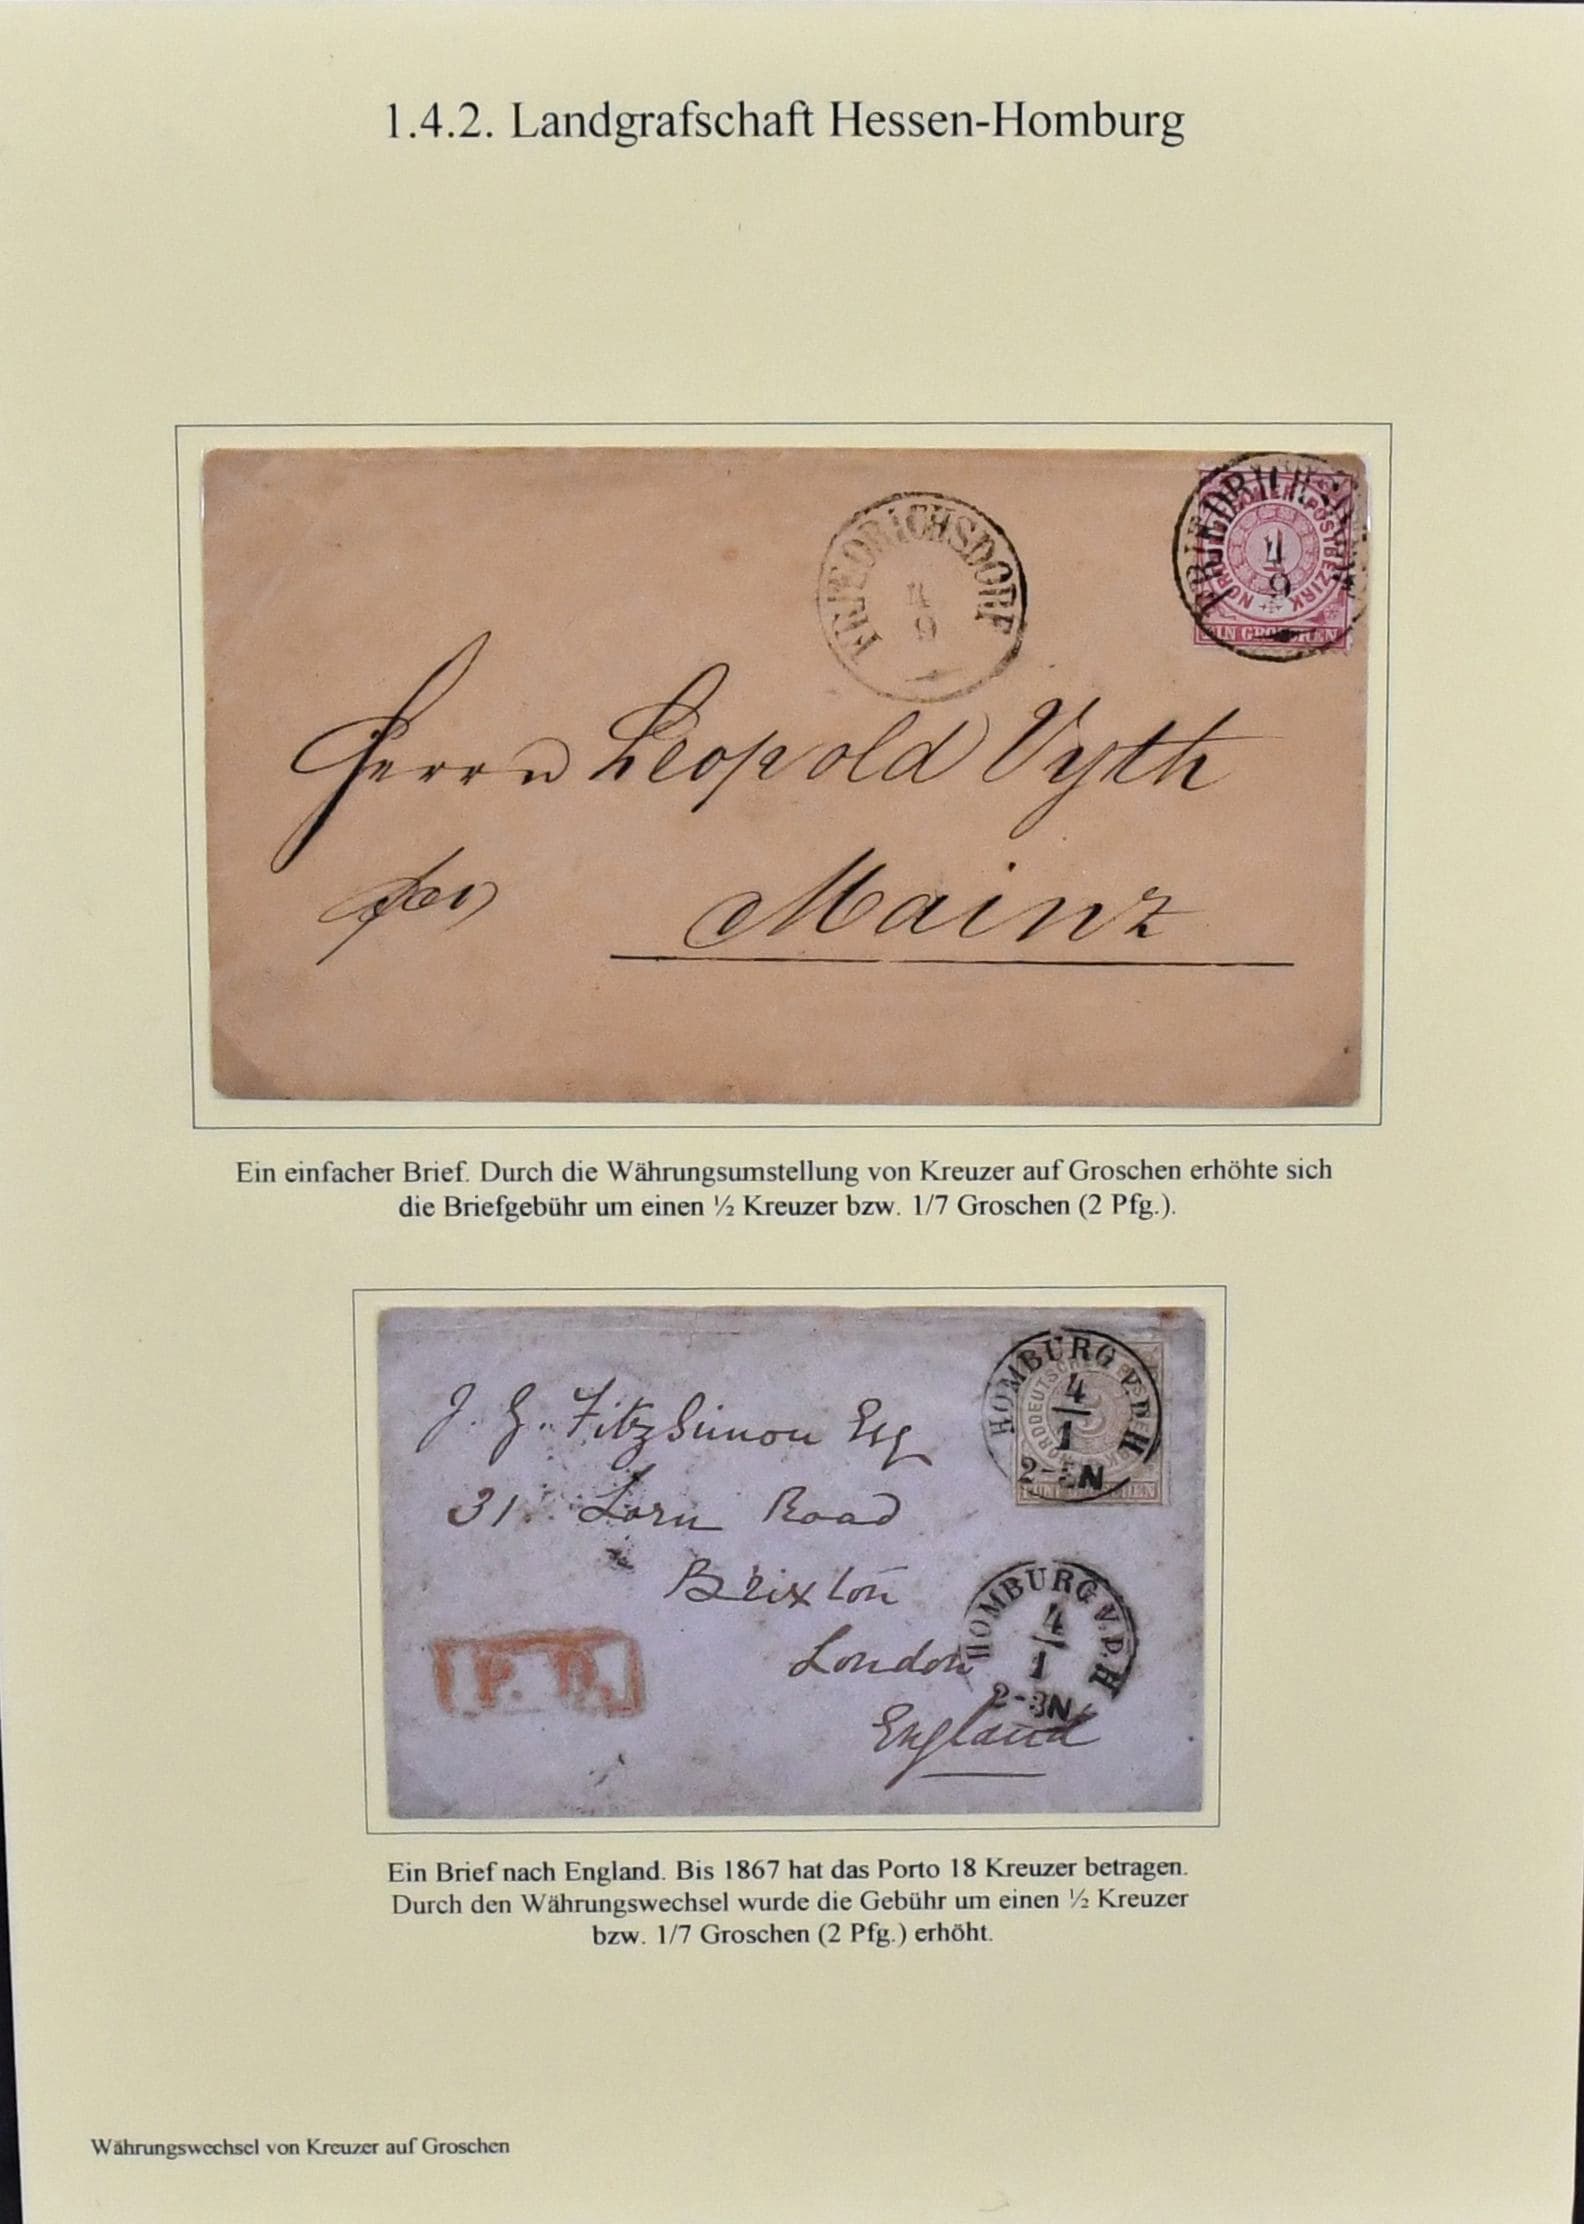 1.4.2. Landgrafschaft Hessen-Homburg
FRIEDRICHSDORF
4
9
NORDDEUTSCHER POSTBEZIRK
1
EIN GROSCHEN
FRIEDRICHSDORF
4
9
Herrn Leopold Vyth
Mainz
Ein einfacher Brief. Durch die Währungsumstellung von Kreuzer auf Groschen erhöhte sich
die Briefgebühr um einen ½ Kreuzer bzw. 1/7 Groschen (2 Pfg.).
HOMBURG V.D.H
4
1
2-3N
NORDDEUTSCHER POSTBEZIRK
FÜNF GROSCHEN
J. G. FitzSimon Esq
31. Lorn Road
Brixton
London
England
HOMBURG V.D.H
4
1
2-3N
P. D.
Ein Brief nach England. Bis 1867 hat das Porto 18 Kreuzer betragen.
Durch den Währungswechsel wurde die Gebühr um einen ½ Kreuzer
bzw. 1/7 Groschen (2 Pfg.) erhöht.
Währungswechsel von Kreuzer auf Groschen